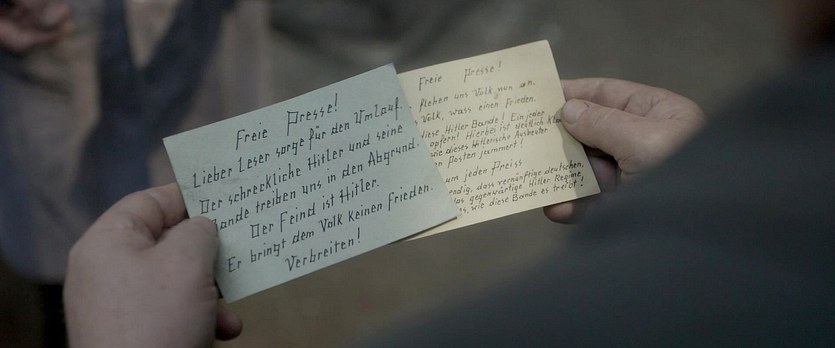 Freie Presse!
Lieber Leser sorge für den Umlauf.
Der schreckliche Hitler und seine
Bande treiben uns in den Abgrund.
Der Feind ist Hitler.
Er bringt dem Volk keinen Frieden.
Verbreiten!
Freie Presse!
flehen uns Volk nun an.
Volk, wass einen Frieden.
diese Hitler Bande! Ein jeder
opfern! Hierbei ist deutlich
wie dieses Hitlerische
n Posten jammert!
um jeden Preiss
dass vernünftige deutschen,
das gegenwärtige Hitler Regime,
es, wie diese Bande es treibt!